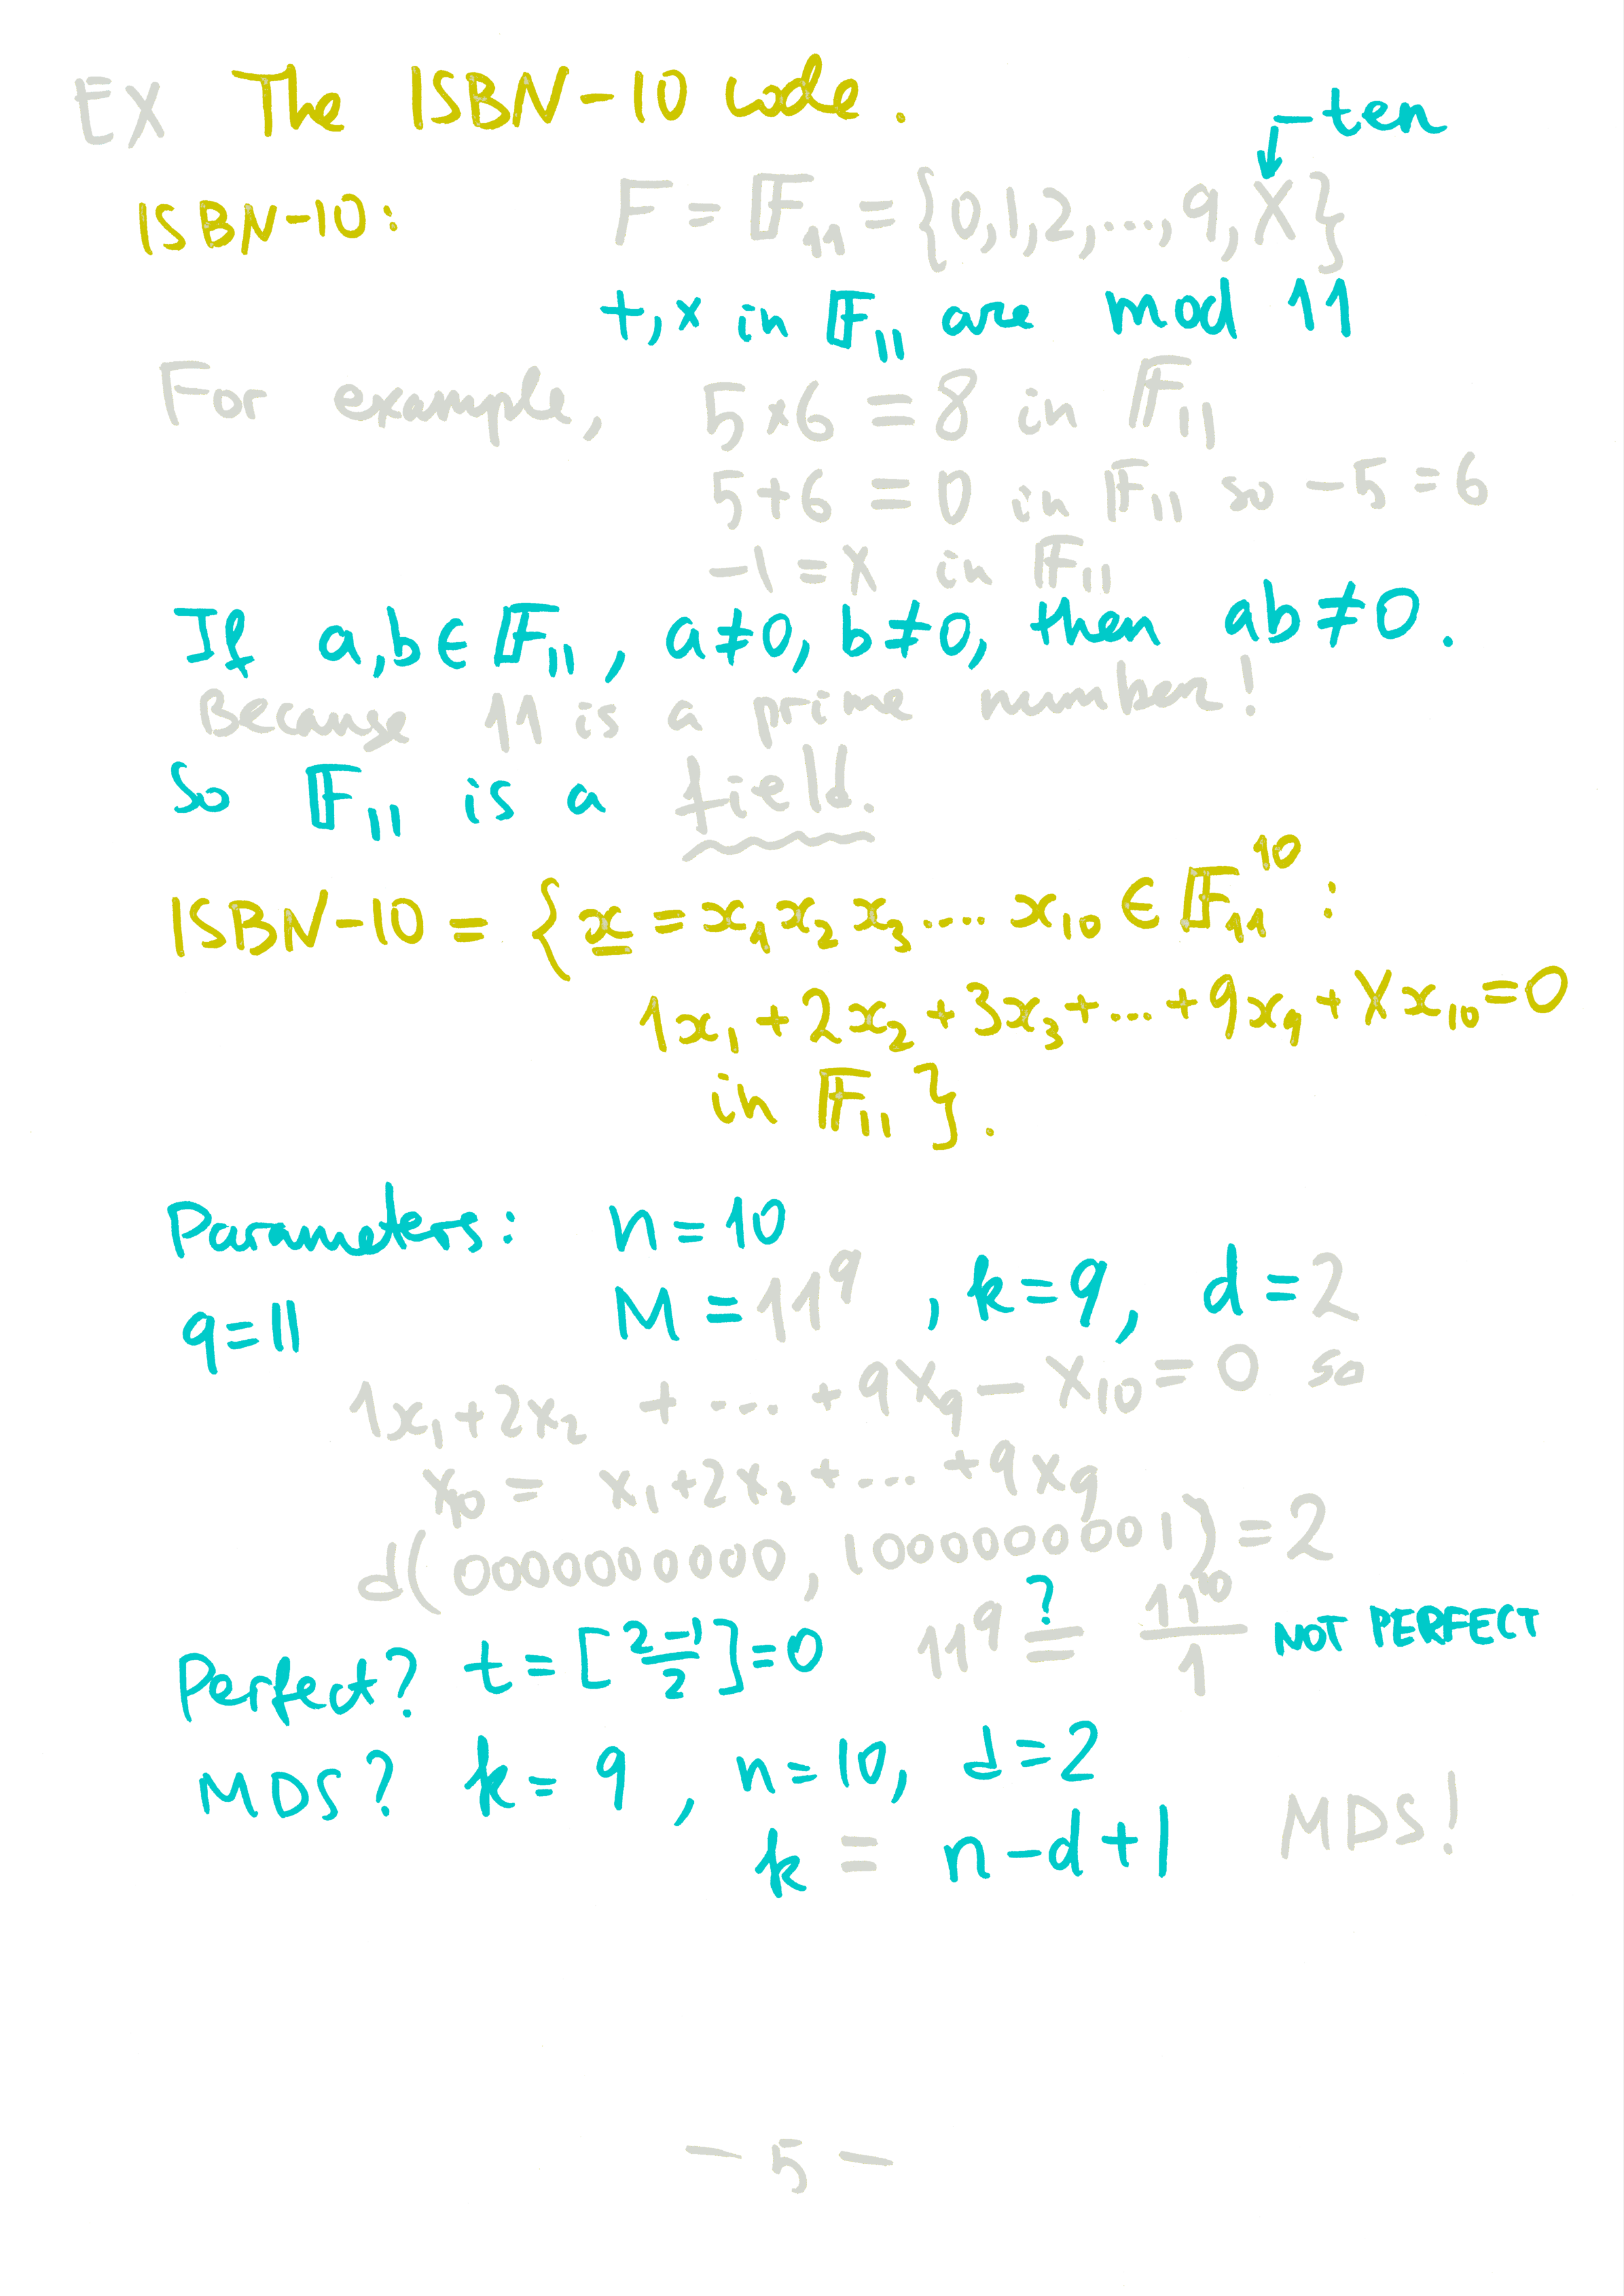 EX The ISBN-10 code.
ten
ISBN-10: F = 𝔽₁₁ = {0,1,2,...,9,X}
+,× in 𝔽₁₁ are mod 11
For example, 5×6 = 8 in 𝔽₁₁
5+6 = 0 in 𝔽₁₁ so -5 = 6
-1 = X in 𝔽₁₁
If a,b ∈ 𝔽₁₁, a≠0, b≠0, then ab≠0.
Because 11 is a prime number!
So 𝔽₁₁ is a field.
ISBN-10 = {x = x₁x₂x₃....x₁₀ ∈ 𝔽₁₁¹⁰ :
1x₁+2x₂+3x₃+...+9x₉+Xx₁₀=0
in 𝔽₁₁}.
Parameters: n=10
q=11 M=11⁹, k=9, d=2
1x₁+2x₂+....+9x₉-x₁₀=0 so
x₁₀ = x₁+2x₂+....+9x₉
d(0000000000, 1000000001)=2
Perfect? t=[(2-1)/2]=0 11⁹ ≟ 11¹⁰/1 NOT PERFECT
MDS? k=9, n=10, d=2
k = n-d+1 MDS!
- 5 -